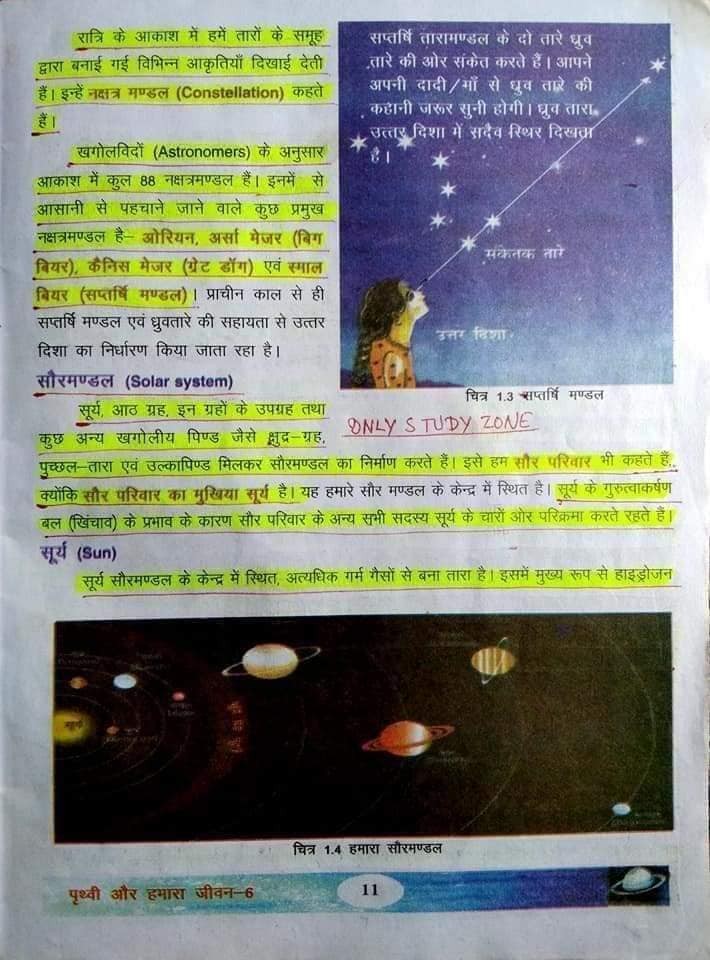 रात्रि के आकाश में हमें तारों के समूह
द्वारा बनाई गई विभिन्न आकृतियाँ दिखाई देती
हैं। इन्हें नक्षत्र मण्डल (Constellation) कहते
हैं।
खगोलविदों (Astronomers) के अनुसार
आकाश में कुल 88 नक्षत्रमण्डल हैं। इनमें से
आसानी से पहचाने जाने वाले कुछ प्रमुख
नक्षत्रमण्डल है– ओरियन, अर्सा मेजर (बिग
बियर), कैनिस मेजर (ग्रेट डॉग) एवं स्माल
बियर (सप्तर्षि मण्डल)। प्राचीन काल से ही
सप्तर्षि मण्डल एवं ध्रुवतारे की सहायता से उत्तर
दिशा का निर्धारण किया जाता रहा है।
सप्तर्षि तारामण्डल के दो तारे ध्रुव
तारे की ओर संकेत करते हैं। आपने
अपनी दादी/माँ से ध्रुव तारे की
कहानी जरूर सुनी होगी। ध्रुव तारा
उत्तर दिशा में सदैव स्थिर दिखता
है।
संकेतक तारे
उत्तर दिशा
चित्र 1.3 सप्तर्षि मण्डल
सौरमण्डल (Solar system)
सूर्य, आठ ग्रह, इन ग्रहों के उपग्रह तथा
कुछ अन्य खगोलीय पिण्ड जैसे क्षुद्र–ग्रह,
ONLY STUDY ZONE
पुच्छल–तारा एवं उल्कापिण्ड मिलकर सौरमण्डल का निर्माण करते हैं। इसे हम सौर परिवार भी कहते हैं,
क्योंकि सौर परिवार का मुखिया सूर्य है। यह हमारे सौर मण्डल के केन्द्र में स्थित है। सूर्य के गुरुत्वाकर्षण
बल (खिंचाव) के प्रभाव के कारण सौर परिवार के अन्य सभी सदस्य सूर्य के चारों ओर परिक्रमा करते रहते हैं।
सूर्य (Sun)
सूर्य सौरमण्डल के केन्द्र में स्थित, अत्यधिक गर्म गैसों से बना तारा है। इसमें मुख्य रूप से हाइड्रोजन
सूर्य
चित्र 1.4 हमारा सौरमण्डल
पृथ्वी और हमारा जीवन–6
11